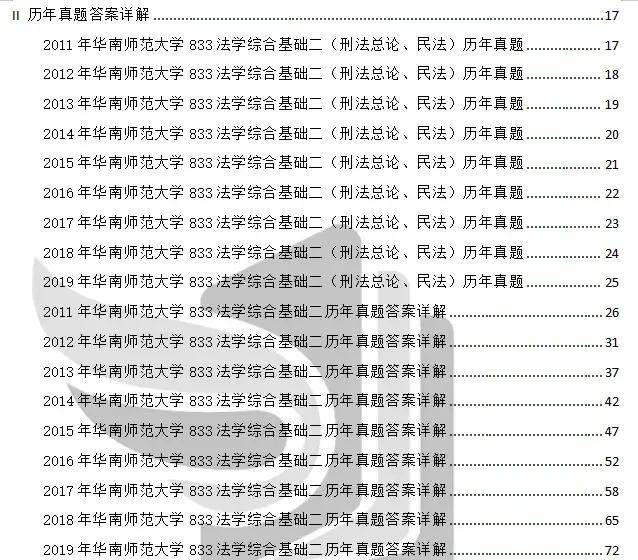 II 历年真题答案详解............................................................17
2011 年华南师范大学 833 法学综合基础二（刑法总论、民法）历年真题................17
2012 年华南师范大学 833 法学综合基础二（刑法总论、民法）历年真题................18
2013 年华南师范大学 833 法学综合基础二（刑法总论、民法）历年真题................19
2014 年华南师范大学 833 法学综合基础二（刑法总论、民法）历年真题................20
2015 年华南师范大学 833 法学综合基础二（刑法总论、民法）历年真题................21
2016 年华南师范大学 833 法学综合基础二（刑法总论、民法）历年真题................22
2017 年华南师范大学 833 法学综合基础二（刑法总论、民法）历年真题................23
2018 年华南师范大学 833 法学综合基础二（刑法总论、民法）历年真题................24
2019 年华南师范大学 833 法学综合基础二（刑法总论、民法）历年真题................25
2011 年华南师范大学 833 法学综合基础二历年真题答案详解............................26
2012 年华南师范大学 833 法学综合基础二历年真题答案详解............................31
2013 年华南师范大学 833 法学综合基础二历年真题答案详解............................37
2014 年华南师范大学 833 法学综合基础二历年真题答案详解............................42
2015 年华南师范大学 833 法学综合基础二历年真题答案详解............................47
2016 年华南师范大学 833 法学综合基础二历年真题答案详解............................52
2017 年华南师范大学 833 法学综合基础二历年真题答案详解............................58
2018 年华南师范大学 833 法学综合基础二历年真题答案详解............................65
2019 年华南师范大学 833 法学综合基础二历年真题答案详解............................72